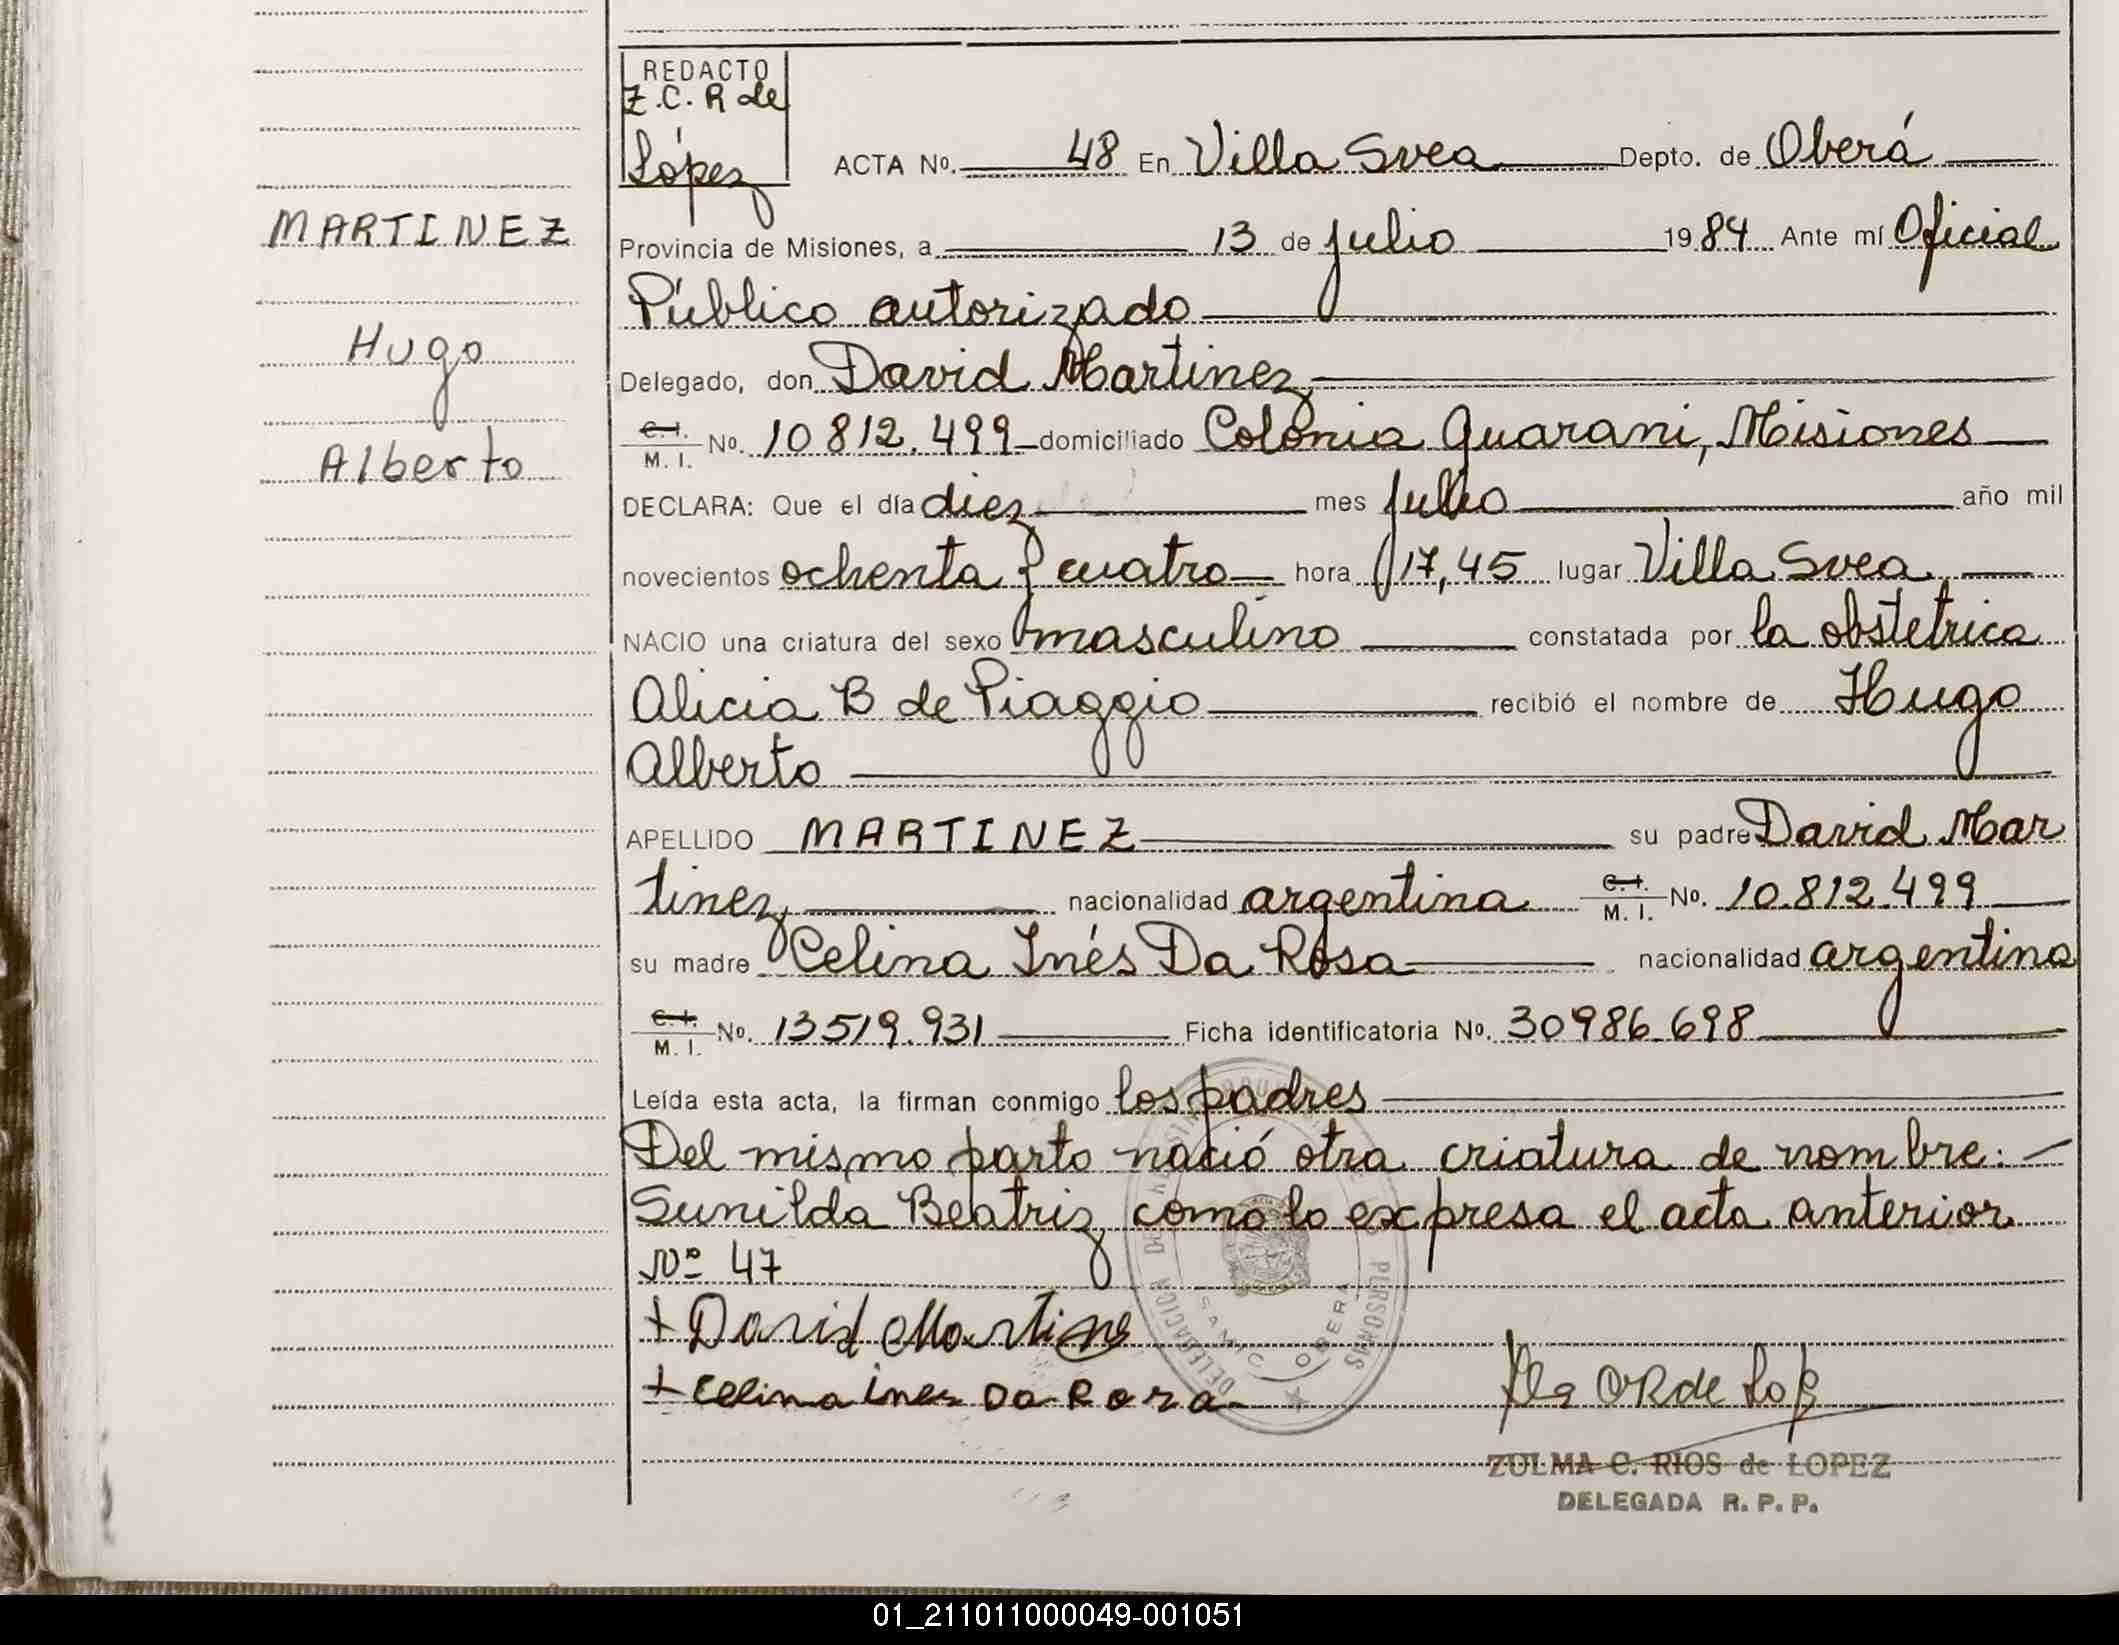 REDACTO
Z.C. R de
López
ACTA No. 48 En Villa Svea Depto. de Oberá
MARTINEZ
Provincia de Misiones, a 13 de julio 1984 Ante mí Oficial
Público autorizado
Hugo
Delegado, don David Martinez
C.I. M. I. No. 10812.499 domiciliado Colonia Guarani, Misiones
Alberto
DECLARA: Que el día diez mes julio año mil
novecientos ochenta y cuatro hora 17,45 lugar Villa Svea,
NACIO una criatura del sexo masculino constatada por la obstetrica
Alicia B de Piaggio recibió el nombre de Hugo
Alberto
APELLIDO MARTINEZ su padre David Mar
tinez nacionalidad argentina C.I. M. I. No. 10.812.499
su madre Celina Inés Da Rosa nacionalidad argentina
C.I. M. I. No. 13519.931 Ficha identificatoria No. 30986.698
Leída esta acta, la firman conmigo los padres
Del mismo parto nació otra criatura de nombre: –
Sunilda Beatriz como lo expresa el acta anterior
Nº 47
+ David Martinez
+ celina ines Da Rosa
ZULMA C. RIOS de LOPEZ
DELEGADA R. P. P.
DELEGACION DE PERSONAS
SAMIC OBERA
01_211011000049-001051